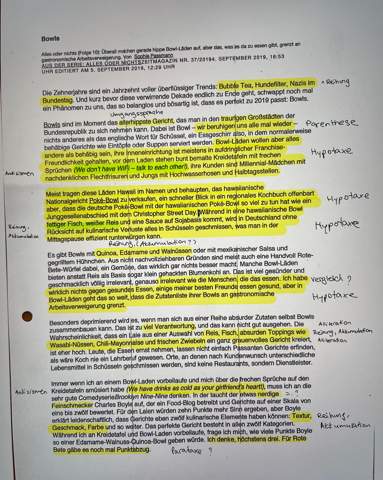 Bowls
Alles oder nichts (Folge 10): Überall machen gerade hippe Bowl-Läden auf, aber das, was es da zu essen gibt, grenzt an
gastronomische Arbeitsverweigerung. Von Sophie Passmann
AUS DER SERIE: ALLES ODER NICHTS ZEITMAGAZIN NR. 37/2019 4. SEPTEMBER 2019, 16:53
UHR EDITIERT AM 5. SEPTEMBER 2019, 12:29 UHR
Die Zehnerjahre sind ein Jahrzehnt voller überflüssiger Trends: Bubble Tea, Hundefilter, Nazis im
Bundestag. Und kurz bevor diese verwirrende Dekade endlich zu Ende geht, schwappt noch mal
ein Phänomen zu uns, das so belanglos und bösartig ist, dass es perfekt zu 2019 passt: Bowls.
Reihung
Umgangssprache
Bowls sind im Moment das allerhippste Gericht, das man in den traurigen Großstädten der
Bundesrepublik zu sich nehmen kann. Dabei ist Bowl – wir beruhigen uns alle mal wieder –
Parenthese
nichts anderes als das englische Wort für Schüssel, ein Essgeschirr also, in dem normalerweise
behäbige Gerichte wie Eintöpfe oder Suppen serviert werden. Bowl-Läden wollen aber alles
anders als behäbig sein, ihre Inneneinrichtung ist meistens in aufdringlicher Franchise-
Hypotaxe
Freundlichkeit gehalten, vor dem Laden stehen bunt bemalte Kreidetafeln mit frechen
Sprüchen (We don't have WiFi – talk to each other!), ihre Kunden sind Millennial-Mädchen mit
nachdenklichen Flechtfrisuren und Jungs mit Hochwasserhosen und Halbtagsstellen.
Meist tragen diese Läden Hawaii im Namen und behaupten, das hawaiianische
Nationalgericht Poké-Bowl zu verkaufen, ein schneller Blick in ein reguläres Kochbuch offenbart
aber, dass die deutsche Poké-Bowl mit der hawaiianischen Poké-Bowl so viel zu tun hat wie ein
Hypotaxe
Junggesellenabschied mit dem Christopher Street Day. Während in eine hawaiianische Bowl
fettiger Fisch, weißer Reis und eine Sauce auf Sojabasis kommt, wird in Deutschland ohne
Rücksicht auf kulinarische Verluste alles in Schüsseln geschmissen, was man in der
Hypotaxe
Mittagspause effizient runterwürgen kann.
Reihung,
Akkumulation
Reihung (Akkumulation?)
Es gibt Bowls mit Quinoa, Edamame und Walnüssen oder mit mexikanischer Salsa und
gegrilltem Hühnchen. Aus nicht nachvollziehbaren Gründen sind meist auch eine Handvoll Rote-
Bete-Würfel dabei, ein Gemüse, das wirklich gar nichts besser macht. Manche Bowl-Läden
bieten anstatt Reis als Basis sogar klein gehackten Blumenkohl an. Das ist viel gesünder und
geschmacklich völlig irrelevant, genauso irrelevant wie die Menschen, die das essen. Ich habe
Vergleich?
wirklich nichts gegen gesundes Essen, einige meiner besten Freunde essen gesund, aber in
Bowl-Läden geht das so weit, dass die Zutatenliste ihrer Bowls an gastronomische
Hypotaxe
Arbeitsverweigerung grenzt.
Besonders deprimierend wird es, wenn man sich aus einer Reihe absurder Zutaten selbst Bowls
zusammenbauen kann. Das ist zu viel Verantwortung, und das kann nicht gut ausgehen. Die
Wahrscheinlichkeit, dass ein Laie aus einer Auswahl von Reis, Fisch, absurden Toppings wie
Wasabi-Nüssen, Chili-Mayonnaise und frischen Zwiebeln ein ganz grauenvolles Gericht kreiert,
ist eher hoch. Leute, die Essen ernst nehmen, lassen nicht einfach Passanten Gerichte erfinden,
als wäre Koch nie ein Lehrberuf gewesen. Orte, an denen nach Kundenwunsch unterschiedliche
Lebensmittel in Schüsseln geschmissen werden, sind keine Restaurants, sondern Dienstleister.
Alliteration
Reihung, Akkumulation
Alliteration
Immer wenn ich an einem Bowl-Laden vorbeilaufe und mich über die frechen Sprüche auf den
Kreidetafeln amüsiert habe (We have drinks as cold as your girlfriend's heart!), muss ich an die
sehr gute Comedyserie Brooklyn Nine-Nine denken. In der taucht der etwas nerdige
Feinschmecker Charles Boyle auf, der ein Food-Blog betreibt und Gerichte auf einer Skala von
eins bis zwölf bewertet. Für den Laien würden zehn Punkte mehr Sinn ergeben, aber Boyle
erklärt leidenschaftlich, dass Gerichte eben zwölf kulinarische Elemente haben können: Textur,
Reihung,
Geschmack, Farbe und so weiter. Das perfekte Gericht besteht in allen zwölf Kategorien.
Akkumulation
Während ich an Kreidetafeln und Bowl-Laden vorbeilaufe, frage ich mich, wie viele Punkte Boyle
so einer Edamame-Walnuss-Quinoa-Bowl geben würde. Ich denke, höchstens drei. Für Rote
Bete gäbe es noch mal Punktabzug.
Parataxe?